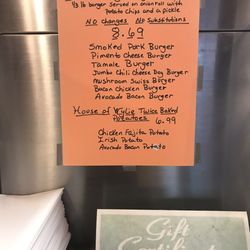 1/3 lb burger served on onion roll with
Potato Chips and a Pickle
No Changes No Substitutions
8.69
Smoked Pork Burger
Pimento Cheese Burger
Tamale Burger
Jumbo Chili Cheese Dog Burger
Mushroom Swiss Burger
Bacon Chicken Burger
Avocado Bacon Burger
House of Wylie Twice Baked
Potatoes 6.99
Chicken Fajita Potato
Irish Potato
Avocado Bacon Potato
Gift
Certificates